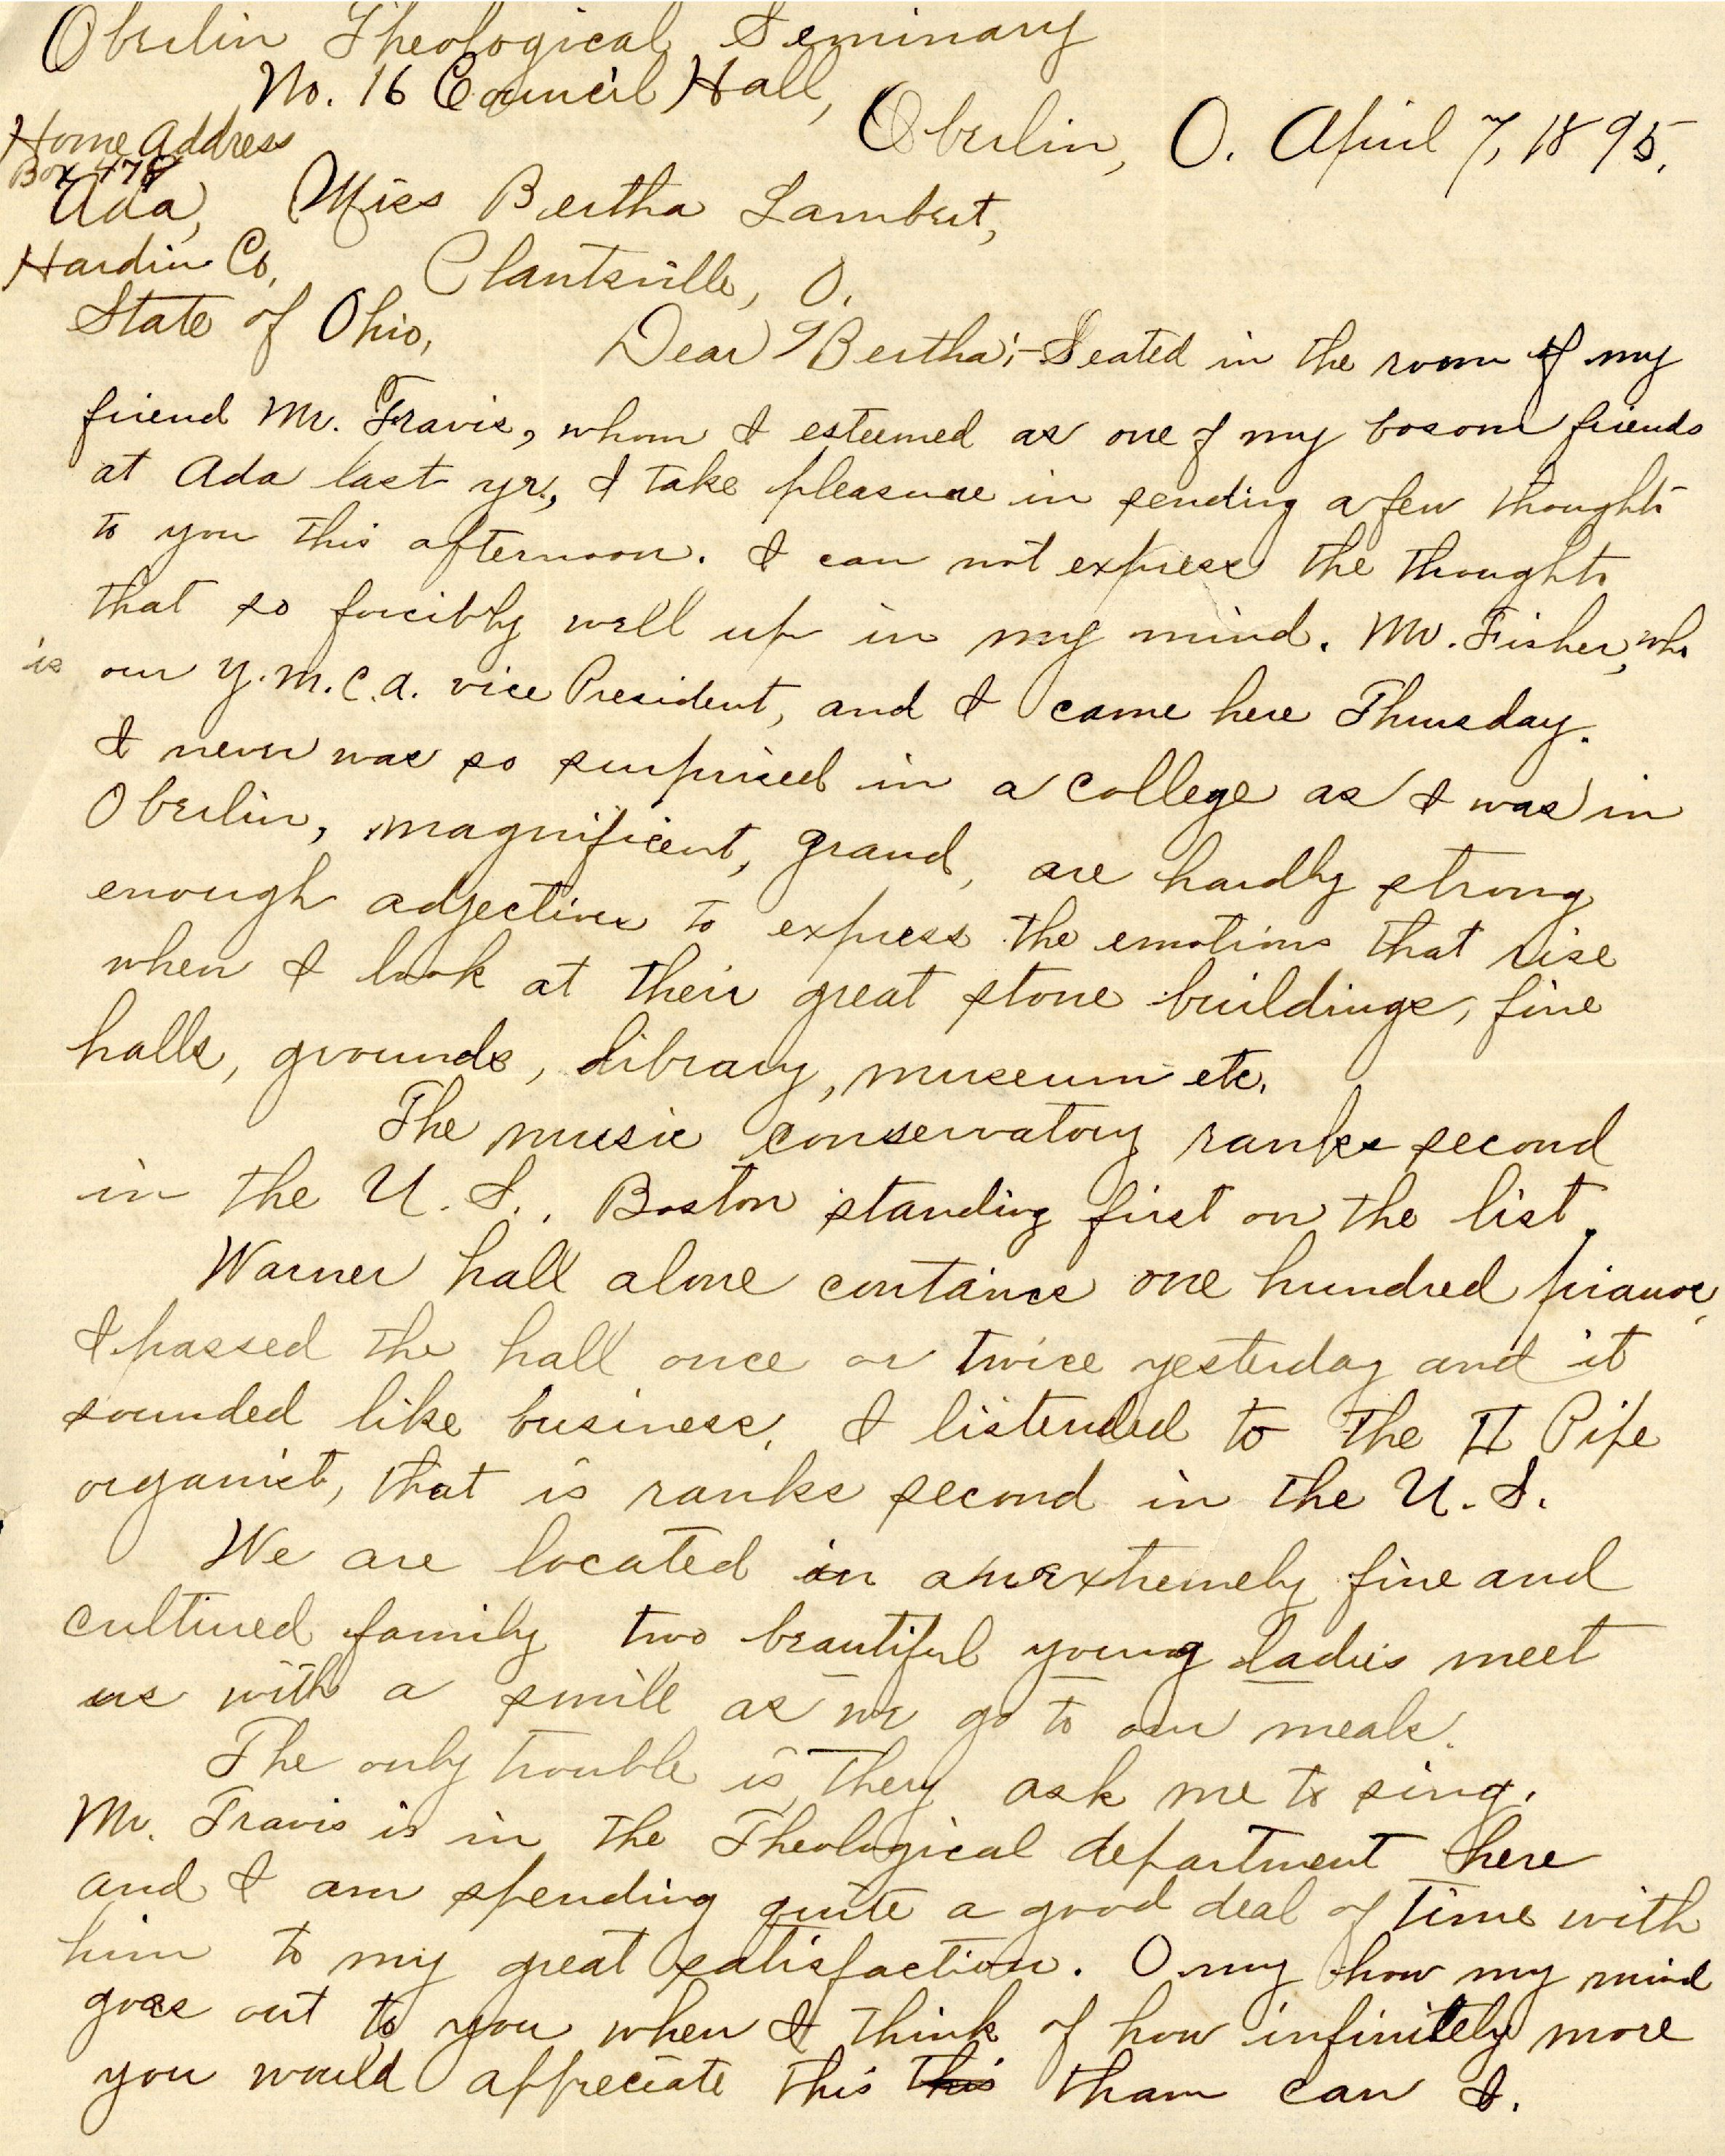 Oberlin Theological Seminary
No. 16 Council Hall,
Oberlin, O. April 7, 1895.
Home Address
Box 478
Ada,
Hardin Co.
State of Ohio,
Miss Bertha Lambert,
Plantsville, O.
Dear Bertha:- Seated in the room of my
friend Mr. Travis, whom I esteemed as one of my bosom friends
at Ada last yr., I take pleasure in sending a few thoughts
to you this afternoon. I can not express the thoughts
that so forcibly well up in my mind. Mr. Fisher, who
is our Y.M.C.A. vice President, and I came here Thursday.
I never was so surprised in a college as I was in
Oberlin, magnificent, grand, are hardly strong
enough adjectives to express the emotions that rise
when I look at their great stone buildings, fine
halls, grounds, library, museum etc.
The music conservatory ranks second
in the U.S., Boston standing first on the list.
Warner hall alone contains one hundred pianos,
I passed the hall once or twice yesterday and it
sounded like business. I listened to the II Pipe
organist, that is ranks second in the U.S.
We are located in an extremely fine and
cultured family two beautiful young ladies meet
us with a smile as we go to our meals.
The only trouble is, they ask me to sing.
Mr. Travis is in the Theological department here
and I am spending quite a good deal of time with
him to my great satisfaction. O my how my mind
goes out to you when I think of how infinitely more
you would appreciate this this than can I.